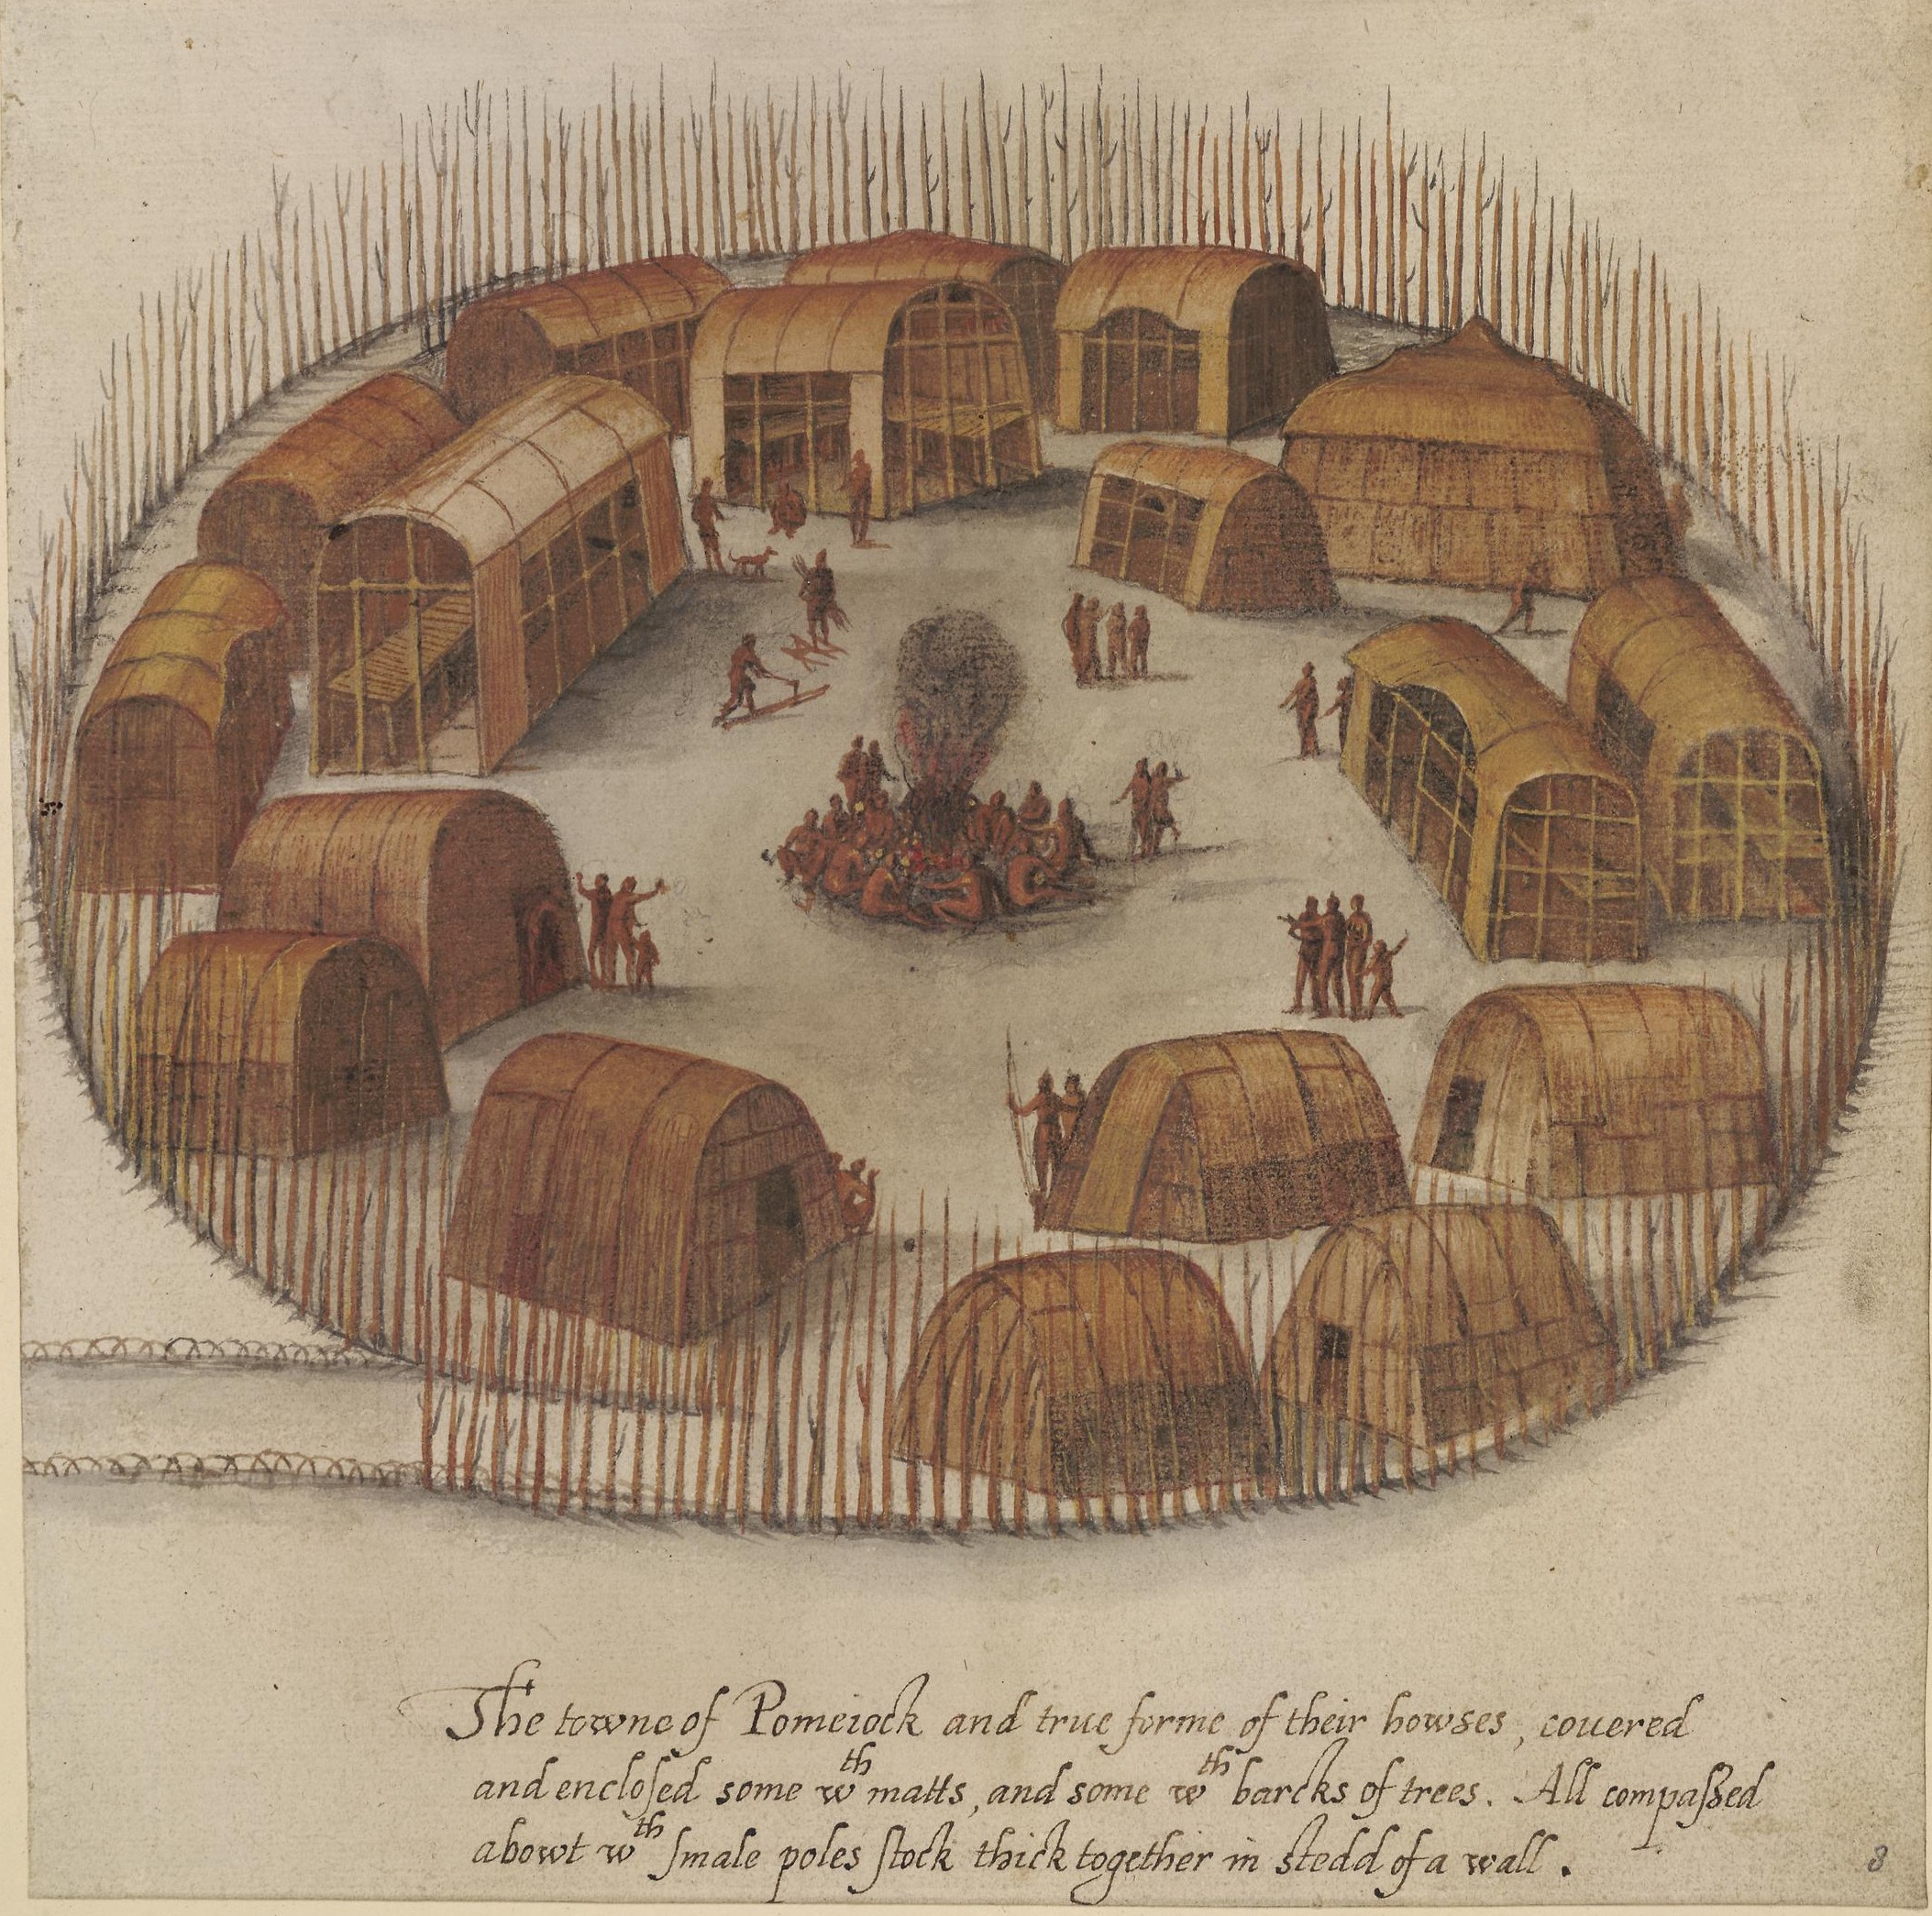 The towne of Pomeiock and true forme of their howses, couered
and encloſed some wth matts, and some wth barcks of trees. All compaſsed
abowt wth ſmale poles ſtock thick together in stedd of a wall.
8